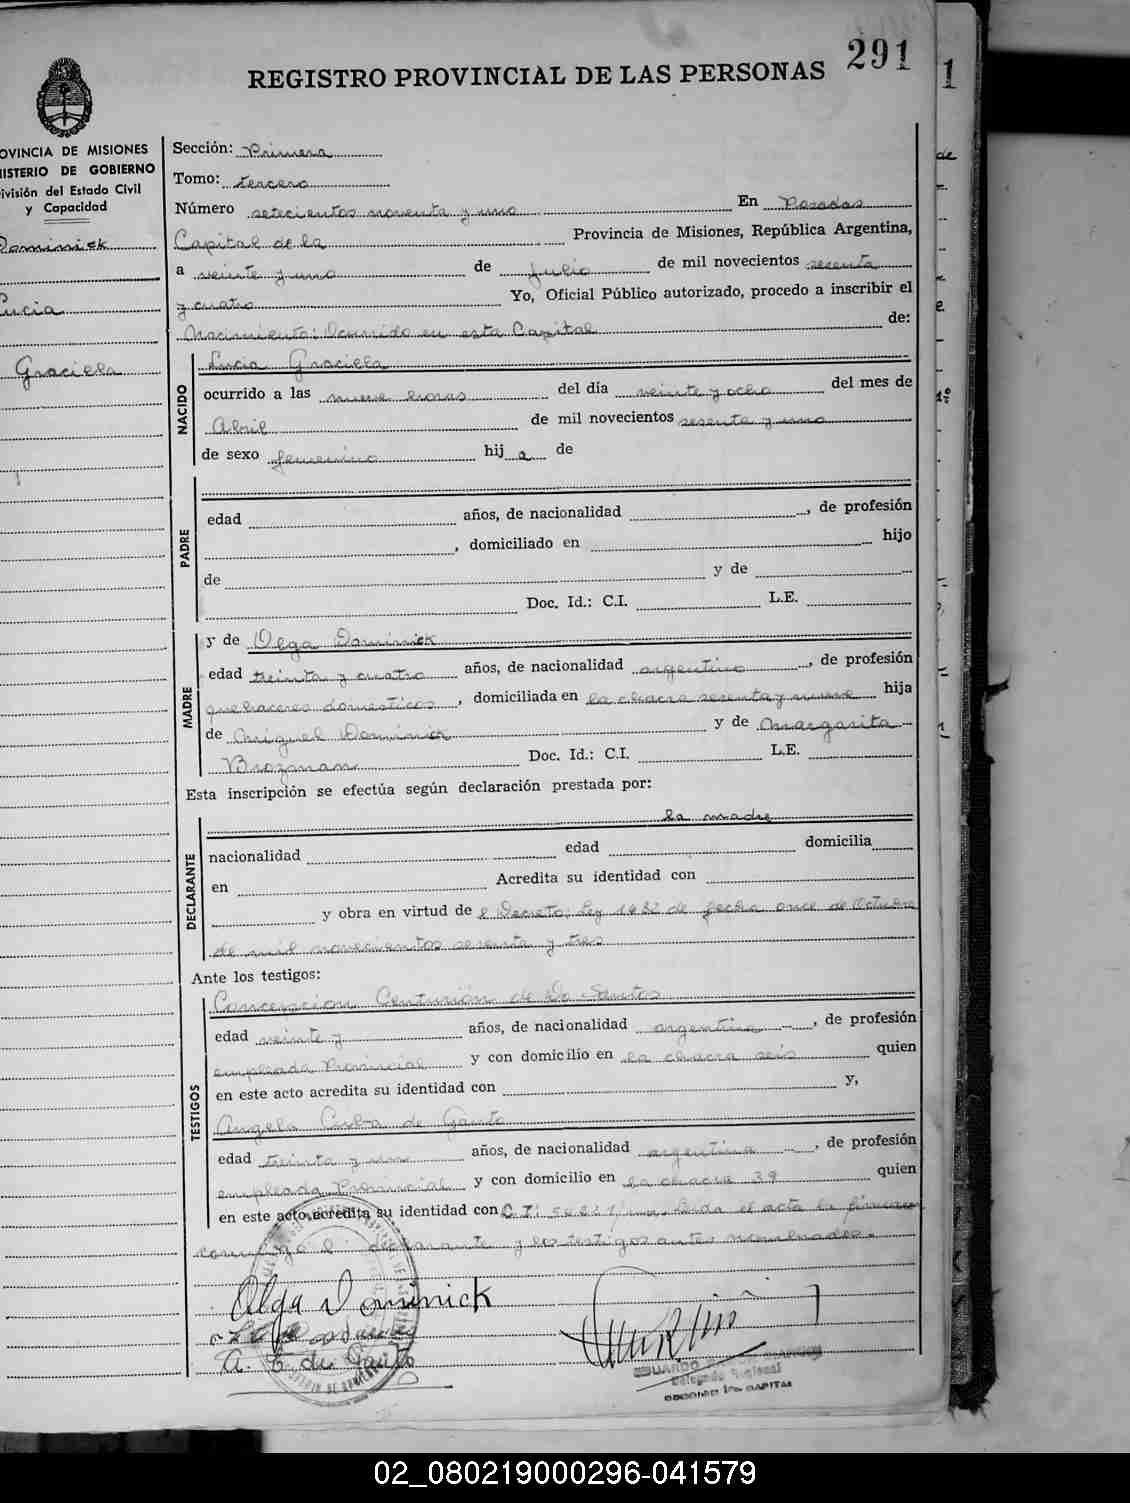 291
REGISTRO PROVINCIAL DE LAS PERSONAS
1
OVINCIA DE MISIONES
ISTERIO DE GOBIERNO
ivisión del Estado Civil
y Capacidad
Dominick
Lucia
Graciela
Sección: Primera
Tomo: tercero
Número setecientos noventa y uno En Posadas
Capital de la Provincia de Misiones, República Argentina,
a veinte y uno de Julio de mil novecientos sesenta
y cuatro Yo, Oficial Público autorizado, procedo a inscribir el
Nacimiento: Ocurrido en esta Capital de:
NACIDO
Lucia Graciela
ocurrido a las nueve horas del día veinte y ocho del mes de
Abril de mil novecientos sesenta y uno
de sexo femenino hij a de
PADRE
edad años, de nacionalidad , de profesión
, domiciliado en hijo
de y de
Doc. Id.: C.I. L.E.
MADRE
y de Olga Dominick
edad treinta y cuatro años, de nacionalidad argentino , de profesión
quehaceres domesticos , domiciliada en la chacra sesenta y nueve hija
de Miguel Dominick y de Margarita
Brozman Doc. Id.: C.I. L.E.
Esta inscripción se efectúa según declaración prestada por:
DECLARANTE
la madre
nacionalidad edad domicilia
en Acredita su identidad con
y obra en virtud de l Decreto; Ley 1432 de fecha once de Octubre
de mil novecientos sesenta y tres
Ante los testigos:
TESTIGOS
Concepcion Centurión de Do Santos
edad veinte y años, de nacionalidad argentina , de profesión
empleada Provincial y con domicilio en la chacra seis quien
en este acto acredita su identidad con y,
Angela de Gauto
edad treinta y uno años, de nacionalidad argentina , de profesión
empleada Provincial y con domicilio en la chacra 39 quien
en este acto acredita su identidad con Leida el acta la firman
conmigo l declarante y los testigos antes nombrados.
Olga Dominick
A. C. de Gauto
EDUARDO
Delegado Regional
CAPITAL
02_080219000296-041579